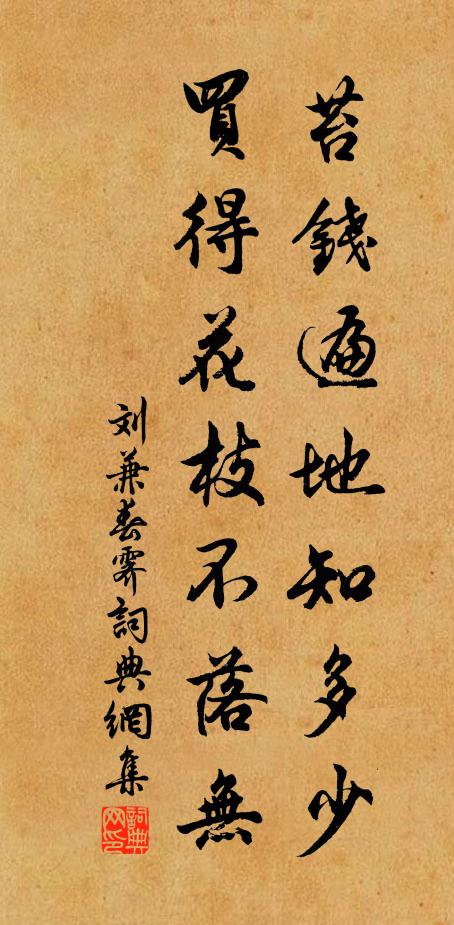 苔錢遍地知多少
買得花枝不落無
刘兼春霽詞典網集
詞典网印